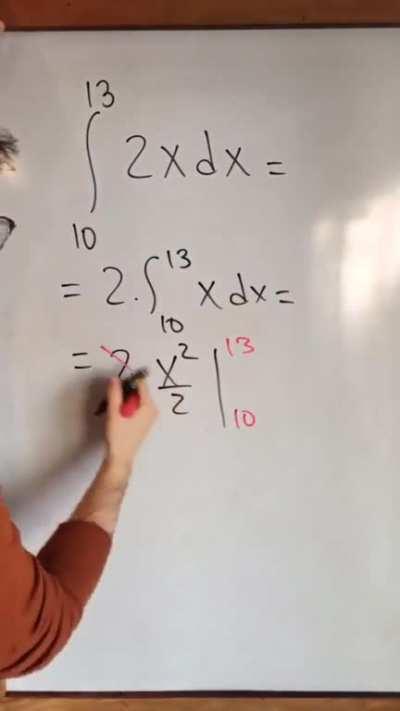 ∫₁₀¹³ 2x dx =
= 2 · ∫₁₀¹³ x dx =
= 2 x²/2 |₁₀¹³